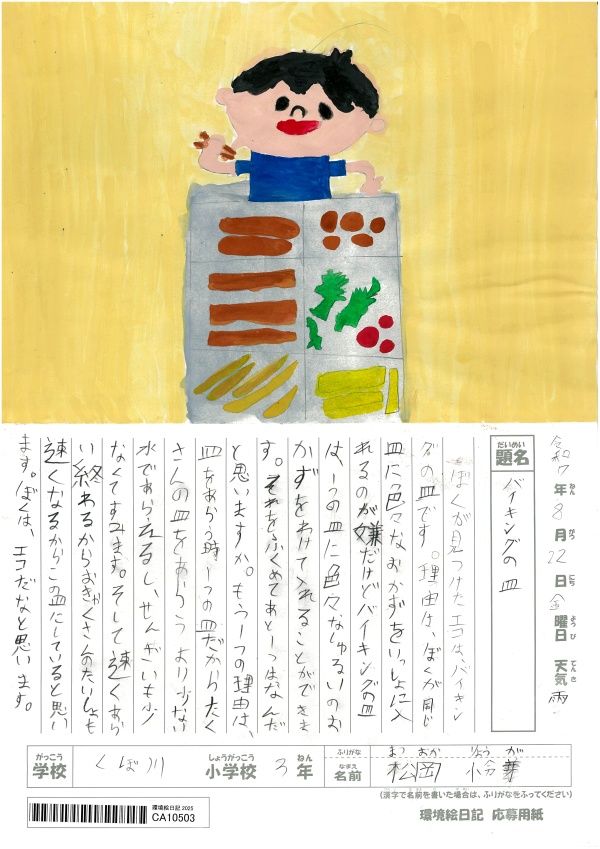 令和7年8月22日金曜日 天気雨
ねん がつ にち ようび てんき
だいめい
題名 バイキングの皿
ぼくが見つけたエコは、バイキン
グの皿です。理由は、ぼくが同じ
皿に色々なおかずをいっしょに入
れるのが嫌だけどバイキングの皿
は、一つの皿に色々なしゅるいのお
かずをわけて入れることができま
す。それをふくめてあと一つはなんだ
と思いますか。もう一つの理由は、
皿をあらう時一つの皿だからたく
さんの皿をあらうより少ない
水であらえるし、せんざいも少
なくてすみます。そして速くあら
い終わるからおきゃくさんのたいしょも
速くなるからこの皿にしていると思い
ます。ぼくは、エコだなと思います。
がっこう しょうがっこう ねん
学校 くぼ川 小学校 3年
ふりがな まつ おか りょう が
なまえ
名前 松岡
(漢字で名前を書いた場合は、ふりがなをふってください)
環境絵日記 応募用紙
環境絵日記 2025
CA10503